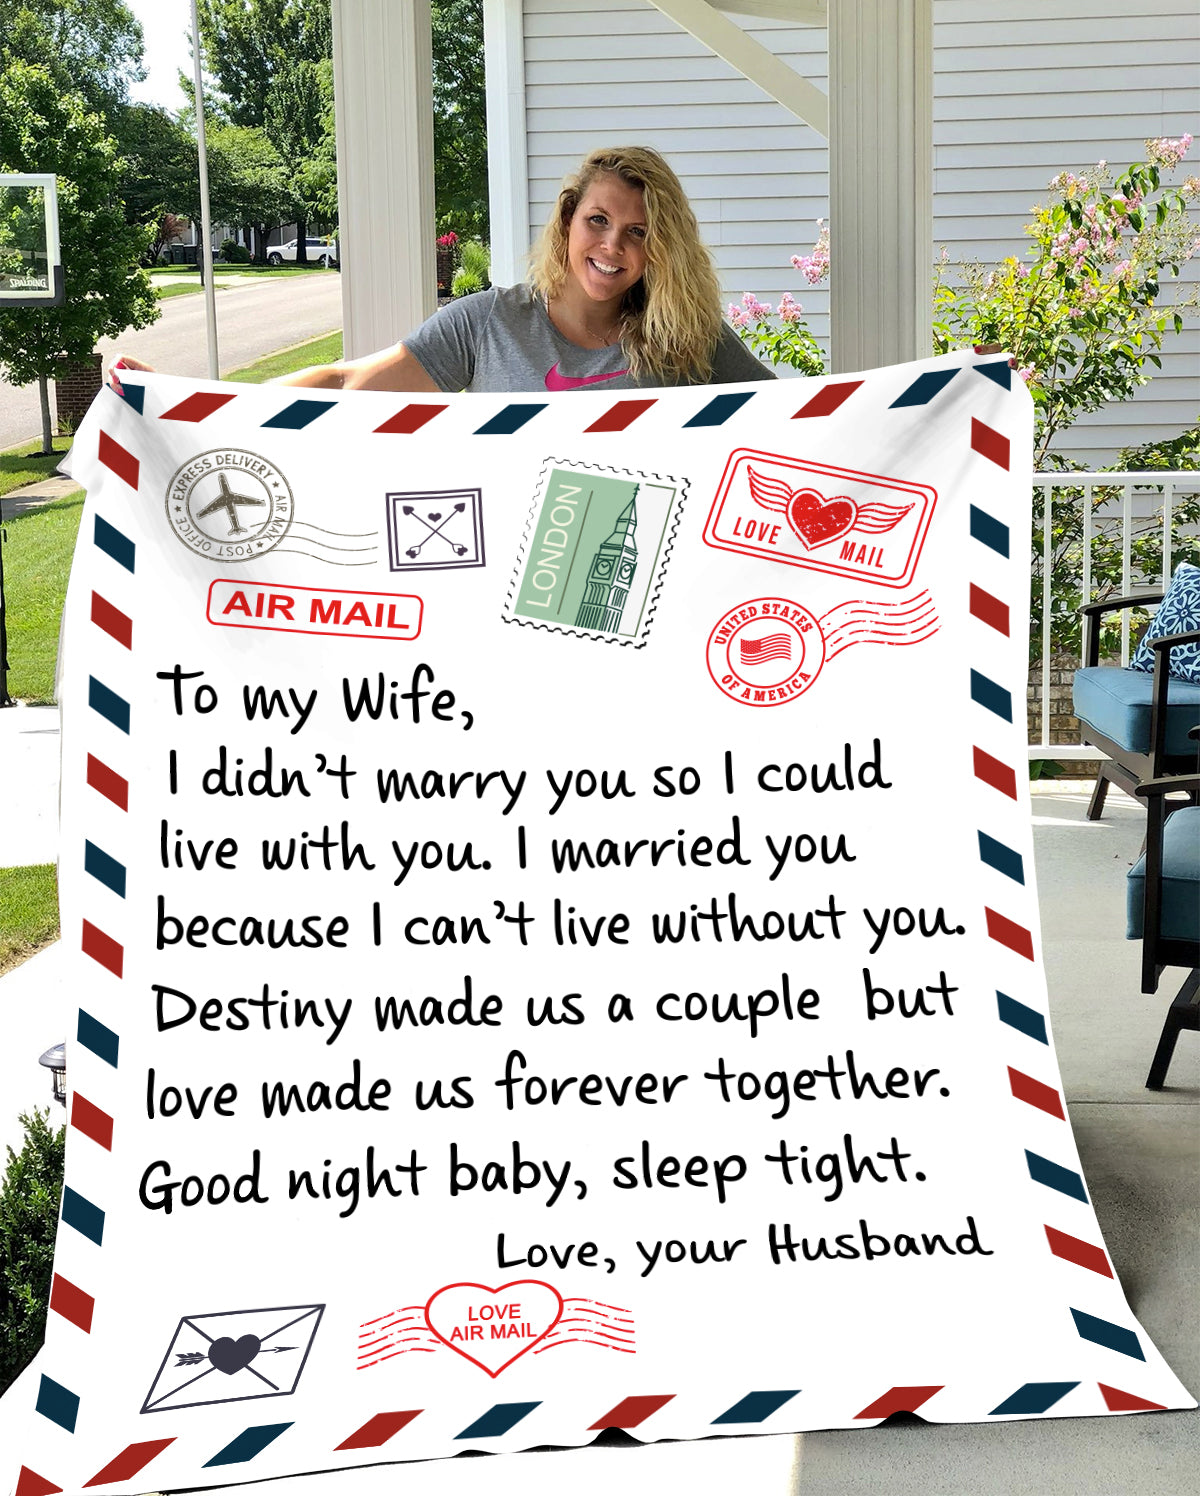 SPALDING
EXPRESS DELIVERY ★ AIR MAIL ★ POST OFFICE ★
AIR MAIL
LONDON
LOVE MAIL
UNITED STATES
OF AMERICA
To my Wife,
I didn't marry you so I could
live with you. I married you
because I can't live without you.
Destiny made us a couple but
love made us forever together.
Good night baby, sleep tight.
Love, your Husband
LOVE
AIR MAIL